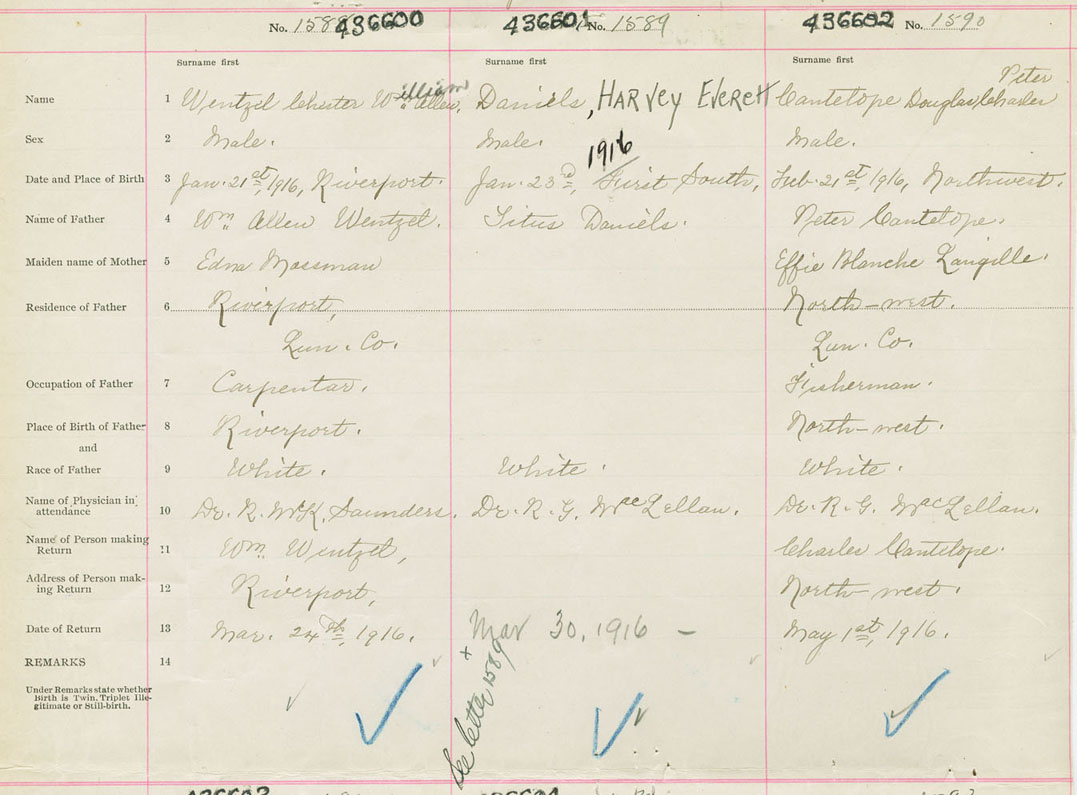 No. 1588 436600 436601 No. 1589 436602 No. 1590
Surname first Surname first Surname first
Peter
Name 1 Wentzel Chester Wm. Allen, Daniels, HARVEY EVERETT Cantelope Douglas, Charles
illiam
Sex 2 Male. Male. Male.
1916
Date and Place of Birth 3 Jan. 21st, 1916, Riverport. Jan. 23rd, First South, Feb. 21st, 1916, Northwest.
Name of Father 4 Wm Allen Wentzel. Titus Daniels. Peter Cantelope.
Maiden name of Mother 5 Edna Mossman Effie Blanche Langille.
Residence of Father 6 Riverport, North-west.
Lun. Co. Lun. Co.
Occupation of Father 7 Carpentar. Fisherman.
Place of Birth of Father 8 Riverport. North-west.
and
Race of Father 9 White. White. White.
Name of Physician in
attendance 10 Dr. R. McK. Saunders. Dr. R. G. MacLellan. Dr. R. G. MacLellan.
Name of Person making
Return 11 Wm. Wentzel, Charles Cantelope.
Address of Person mak-
ing Return 12 Riverport, North-west.
Date of Return 13 Mar. 24th, 1916. Mar 30, 1916 — May 1st, 1916.
REMARKS 14
Under Remarks state whether
Birth is Twin, Triplet Ille-
gitimate or Still-birth.
x See letter 1589